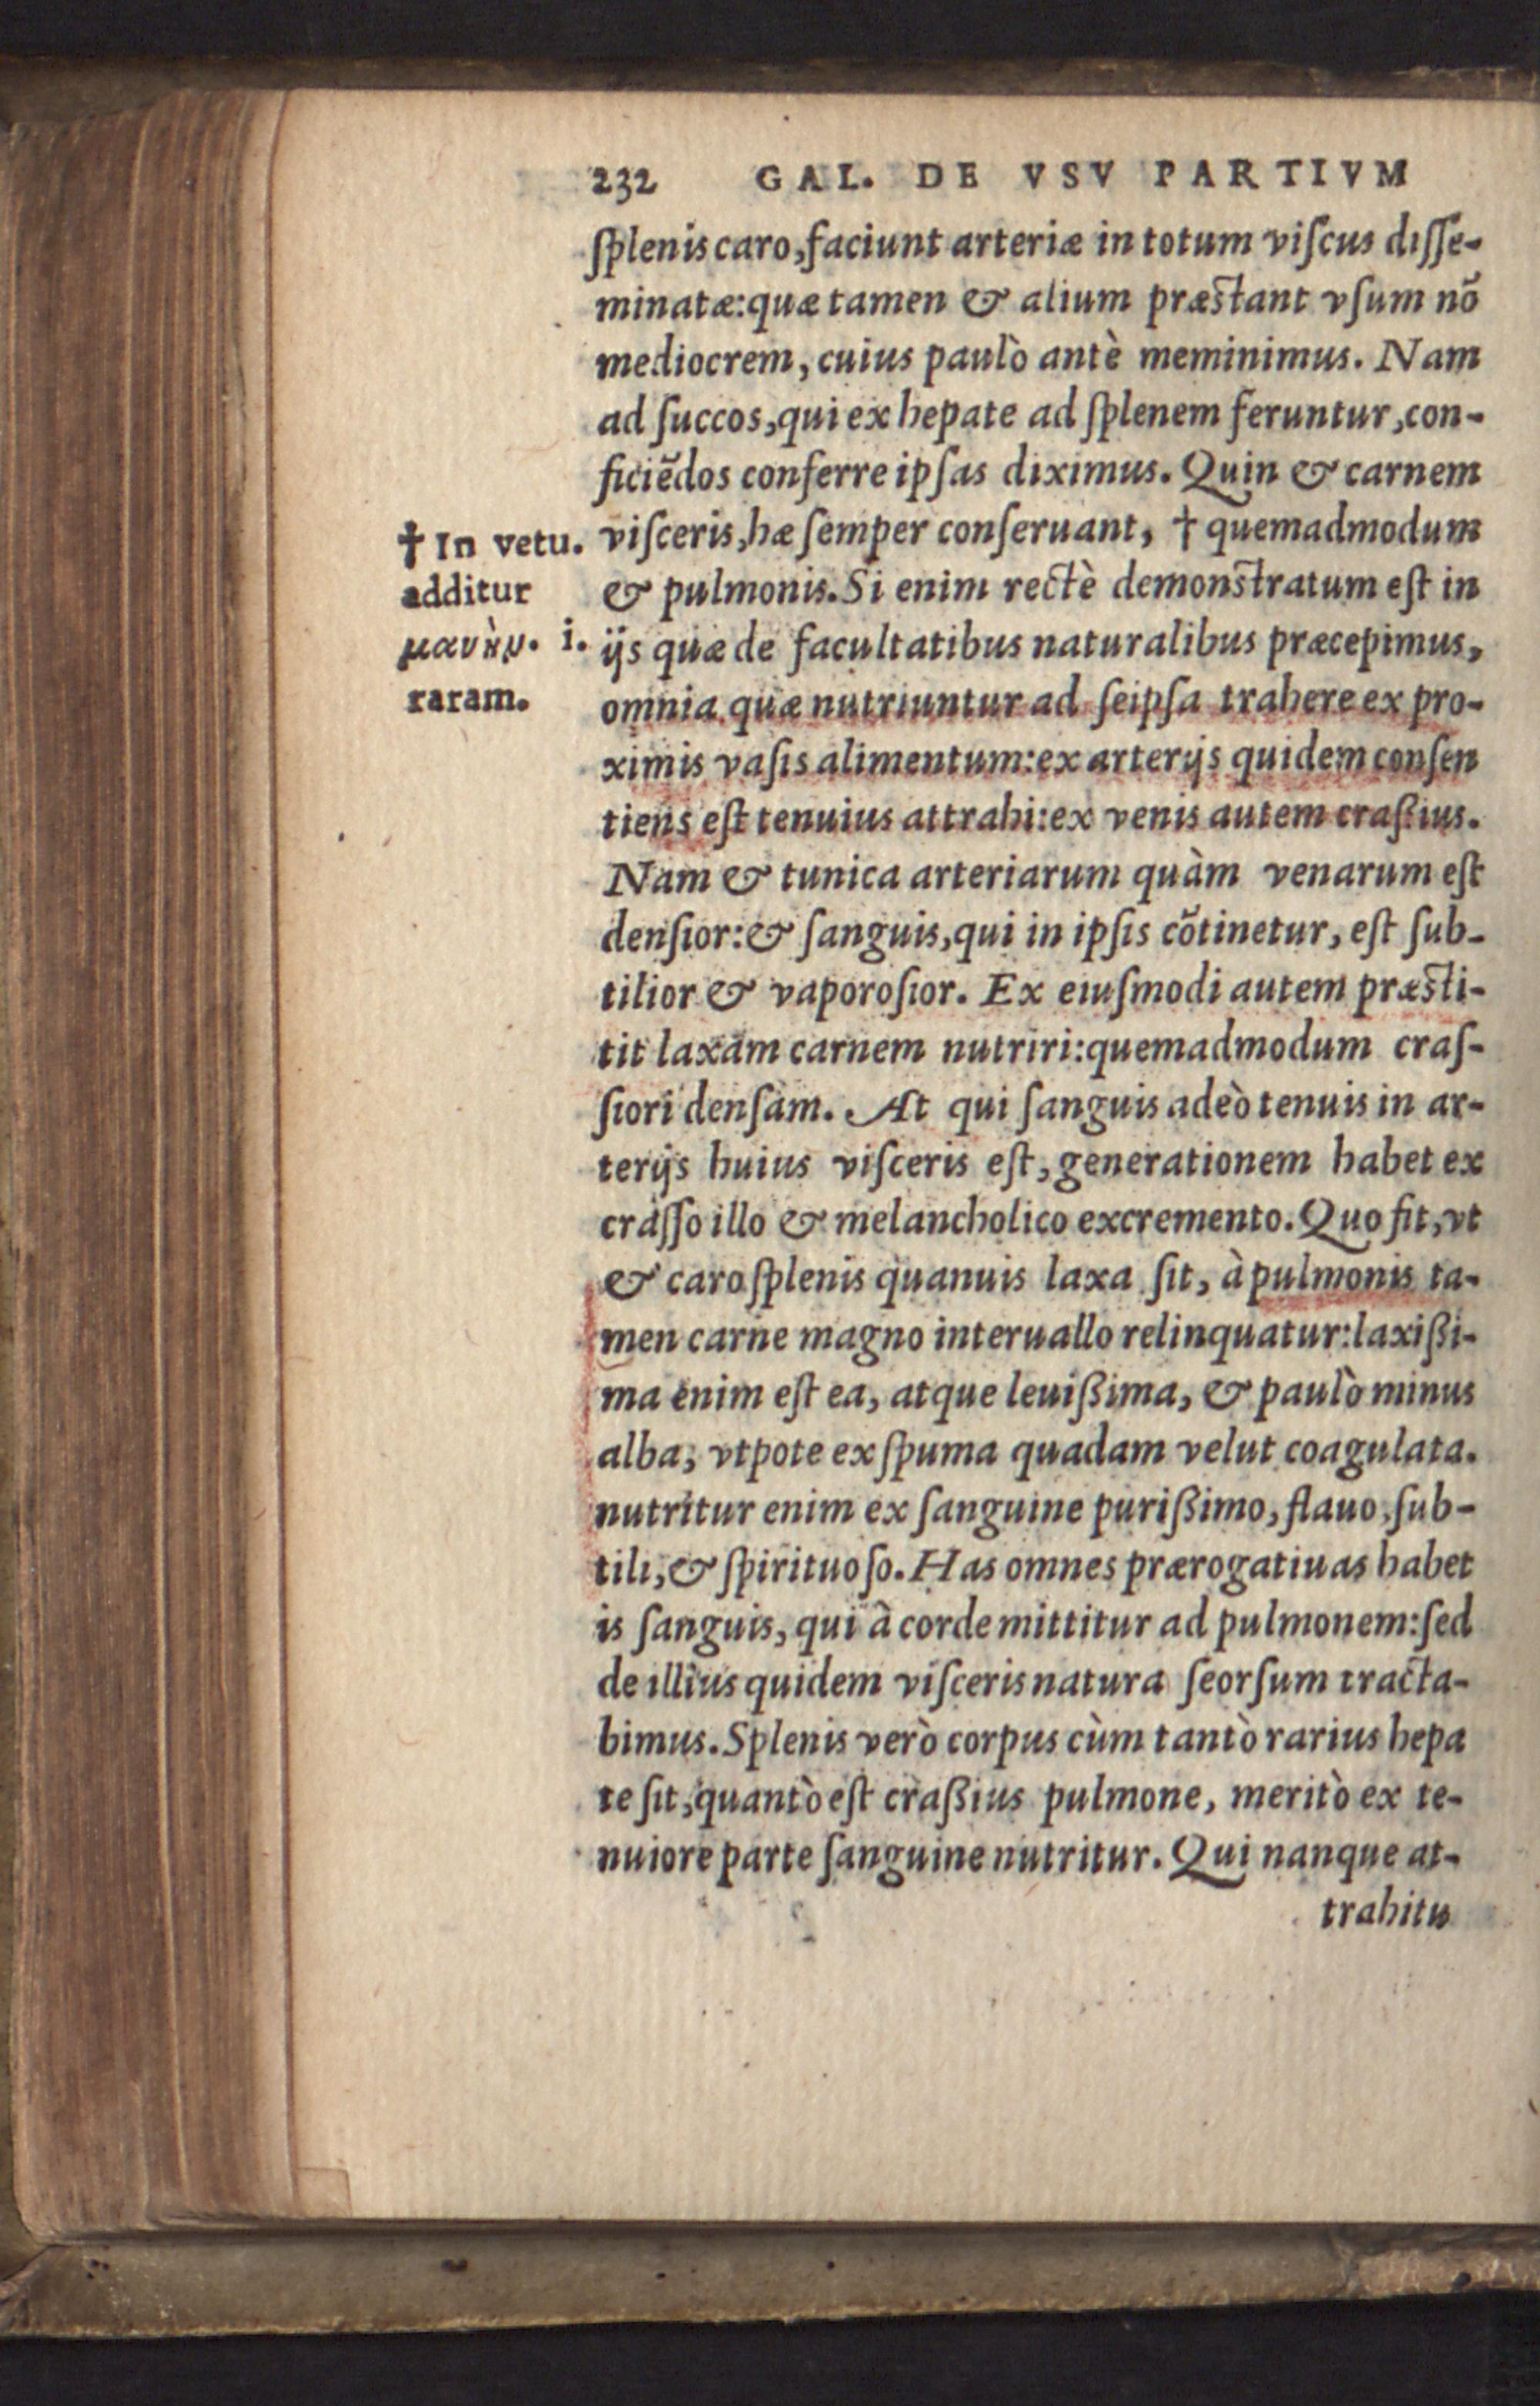 232 GAL. DE VSV PARTIVM
ſplenis caro, faciunt arteriæ in totum viſcus diſſe-
minatæ: quæ tamen & alium præſtant vſum nõ
mediocrem, cuius paulò antè meminimus. Nam
ad ſuccos, qui ex hepate ad ſplenem feruntur, con-
ficiẽdos conferre ipſas diximus. Quin & carnem
viſceris, hæ ſemper conſeruant, † quemadmodum
& pulmonis. Si enim rectè demonſtratum eſt in
ijs quæ de facultatibus naturalibus præcepimus,
omnia quæ nutriuntur ad ſeipſa trahere ex pro-
ximis vaſis alimentum: ex arterijs quidem conſen
tiens eſt tenuius attrahi: ex venis autem craſsius.
Nam & tunica arteriarum quàm venarum eſt
denſior: & ſanguis, qui in ipſis cõtinetur, eſt ſub-
tilior & vaporoſior. Ex eiuſmodi autem præſti-
tit laxam carnem nutriri: quemadmodum craſ-
ſiori denſam. At qui ſanguis adeò tenuis in ar-
terijs huius viſceris eſt, generationem habet ex
craſſo illo & melancholico excremento. Quo fit, vt
& caro ſplenis quanuis laxa ſit, à pulmonis ta-
men carne magno interuallo relinquatur: laxißi-
ma enim eſt ea, atque leuißima, & paulò minus
alba, vtpote ex ſpuma quadam velut coagulata.
nutritur enim ex ſanguine purißimo, flauo, ſub-
tili, & ſpirituoſo. Has omnes prærogatiuas habet
is ſanguis, qui à corde mittitur ad pulmonem: ſed
de illius quidem viſceris natura ſeorſum tracta-
bimus. Splenis verò corpus cùm tantò rarius hepa
te ſit, quantò eſt craßius pulmone, meritò ex te-
nuiore parte ſanguine nutritur. Qui nanque at-
trahitu
† In vetu.
additur
μανὴν. i.
raram.